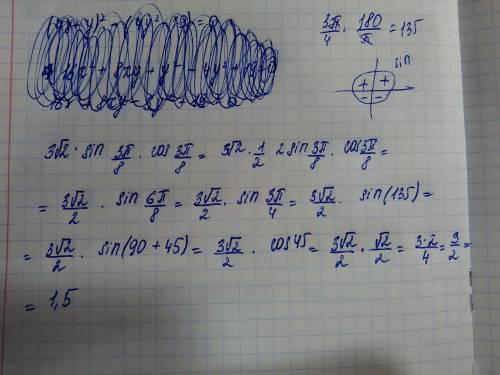 3π/4 · 180/π = 135
sin
+ +
- -
3√2 · sin 3π/8 · cos 3π/8 = 3√2 · 1/2 2 sin 3π/8 · cos 3π/8 =
= 3√2/2 · sin 6π/8 = 3√2/2 · sin 3π/4 = 3√2/2 · sin(135) =
= 3√2/2 · sin(90 + 45) = 3√2/2 · cos 45 = 3√2/2 · √2/2 = 3·2/4 = 3/2 =
= 1,5